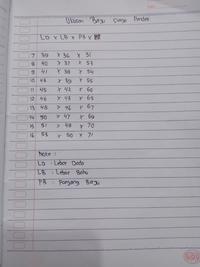 Ukuran Baju
LD x LB x PB x
7 39 x 36 x 51
8 40 x 37 x 53
9 41 x 38 x 54
10 43 x 39 x 55
11 45 x 42 x 60
12 46 x 43 x 65
13 48 x 46 x 67
14 50 x 47 x 69
15 51 x 48 x 70
16 53 x 50 x 71
Note :
LD : Lebar Dada
LB : Lebar Bahu
PB : Panjang Baju